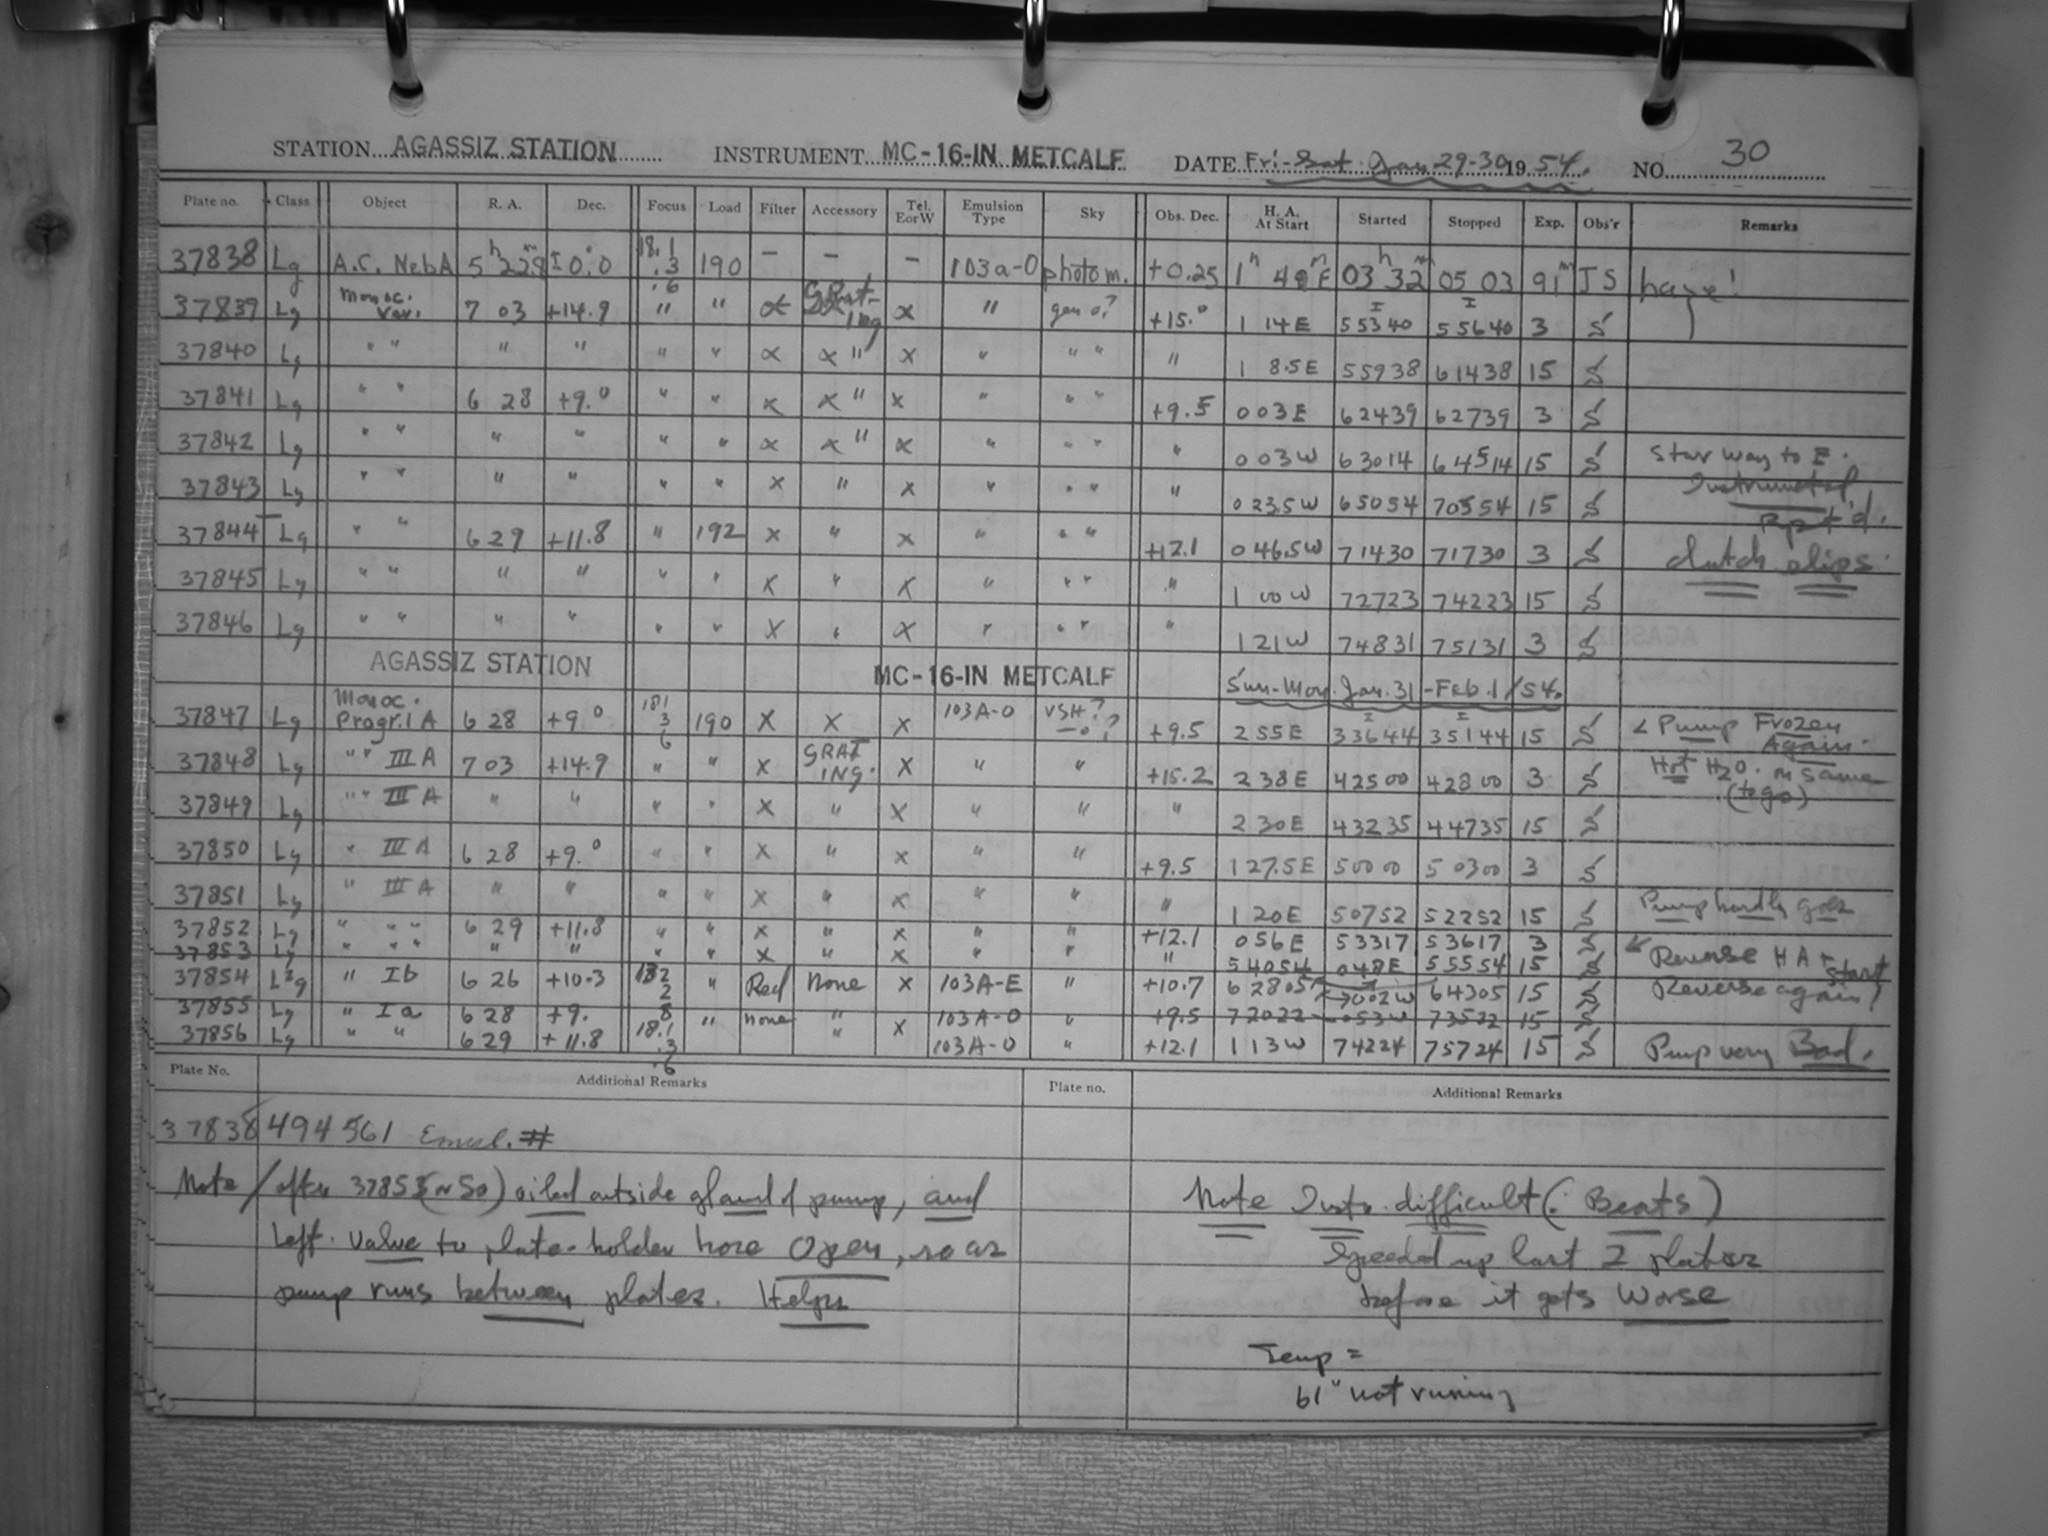 STATION AGASSIZ STATION INSTRUMENT MC-16-IN METCALF DATE Fri-Sat Jan 29-30 19 54. NO. 30
Plate no. Class Object R. A. Dec. Focus Load Filter Accessory Tel. E or W Emulsion Type Sky Obs. Dec. H. A. At Start Started Stopped Exp. Obs'r Remarks
37838 Lg A.C. Neb A 5h 229m 0.0 18.1 .3 .6 190 - - - 103a-O photom. +0.25 1h 49m E 03h 32m 05 03 91m JS haze!
37839 Lg Monoc. Var. 7 03 +14.9 " " x Grating x " gen o? +15.0 1 14E 55340 55640 3 S
37840 Lg " " " " " " x x " x " " " " 1 8.5E 55938 61438 15 S
37841 Lg " " 6 28 +9.0 " " x x " x " " " +9.5 0 03E 62439 62739 3 S
37842 Lg " " " " " " x x " x " " " " 0 03W 63014 64514 15 S Star way to E.
37843 Lg " " " " " " x " x " " " " 0 23.5W 65054 70554 15 S Instrumental Rpt'd.
37844 Lg " " 6 29 +11.8 " 192 x " x " " " +12.1 0 46.5W 71430 71730 3 S clutch slips.
37845 Lg " " " " " " x " x " " " " 1 00W 72723 74223 15 S
37846 Lg " " " " " " x " x " " " " 1 21W 74831 75131 3 S
AGASSIZ STATION MC-16-IN METCALF Sun-Mon. Jan. 31-Feb. 1/54.
37847 Lg Monoc. Progr. I A 6 28 +9.0 181 3 6 190 x x x 103A-O VSH? +9.5 2 55E 33644 35144 15 S < Pump Frozen Again.
37848 Lg " " III A 7 03 +14.9 " " x GRATING. x " " +15.2 2 38E 42500 42800 3 S Hot H2O. on same (to go)
37849 Lg " " III A " " " " x " x " " " 2 30E 43235 44735 15 S
37850 Lg " III A 6 28 +9.0 " " x " x " " +9.5 1 27.5E 50000 50300 3 S
37851 Lg " III A " " " " x " x " " " 1 20E 50752 52252 15 S Pump hardly goes
37852 Lg " " " 6 29 +11.8 " " x " x " " +12.1 0 56E 53317 53617 3 S
37853 Lg " " " " " " " x " x " " " 54054 048E 55554 15 S Reverse HA + Start
37854 Lg " Ib 6 26 +10.3 182 2 8 " Red none x 103A-E " +10.7 62805 002W 64305 15 S Reverse again!
37855 Lg " Ia 6 28 +9. " none " 103A-O " +9.5 72022 053W 73522 15 S
37856 Lg " " 6 29 +11.8 18.1 .3 .6 " x 103A-O " +12.1 1 13W 74224 75724 15 S Pump very Bad.
Plate No. Additional Remarks Plate no. Additional Remarks
37838 494561 Emul. #
Note / after 37853 oiled outside gland of pump, and
left valve to plate-holder hose Open, so as
pump runs between plates. Helps
Note Instr. difficult (: Beats)
Speeded up last 2 plates
before it gets Worse
Temp =
61° not running